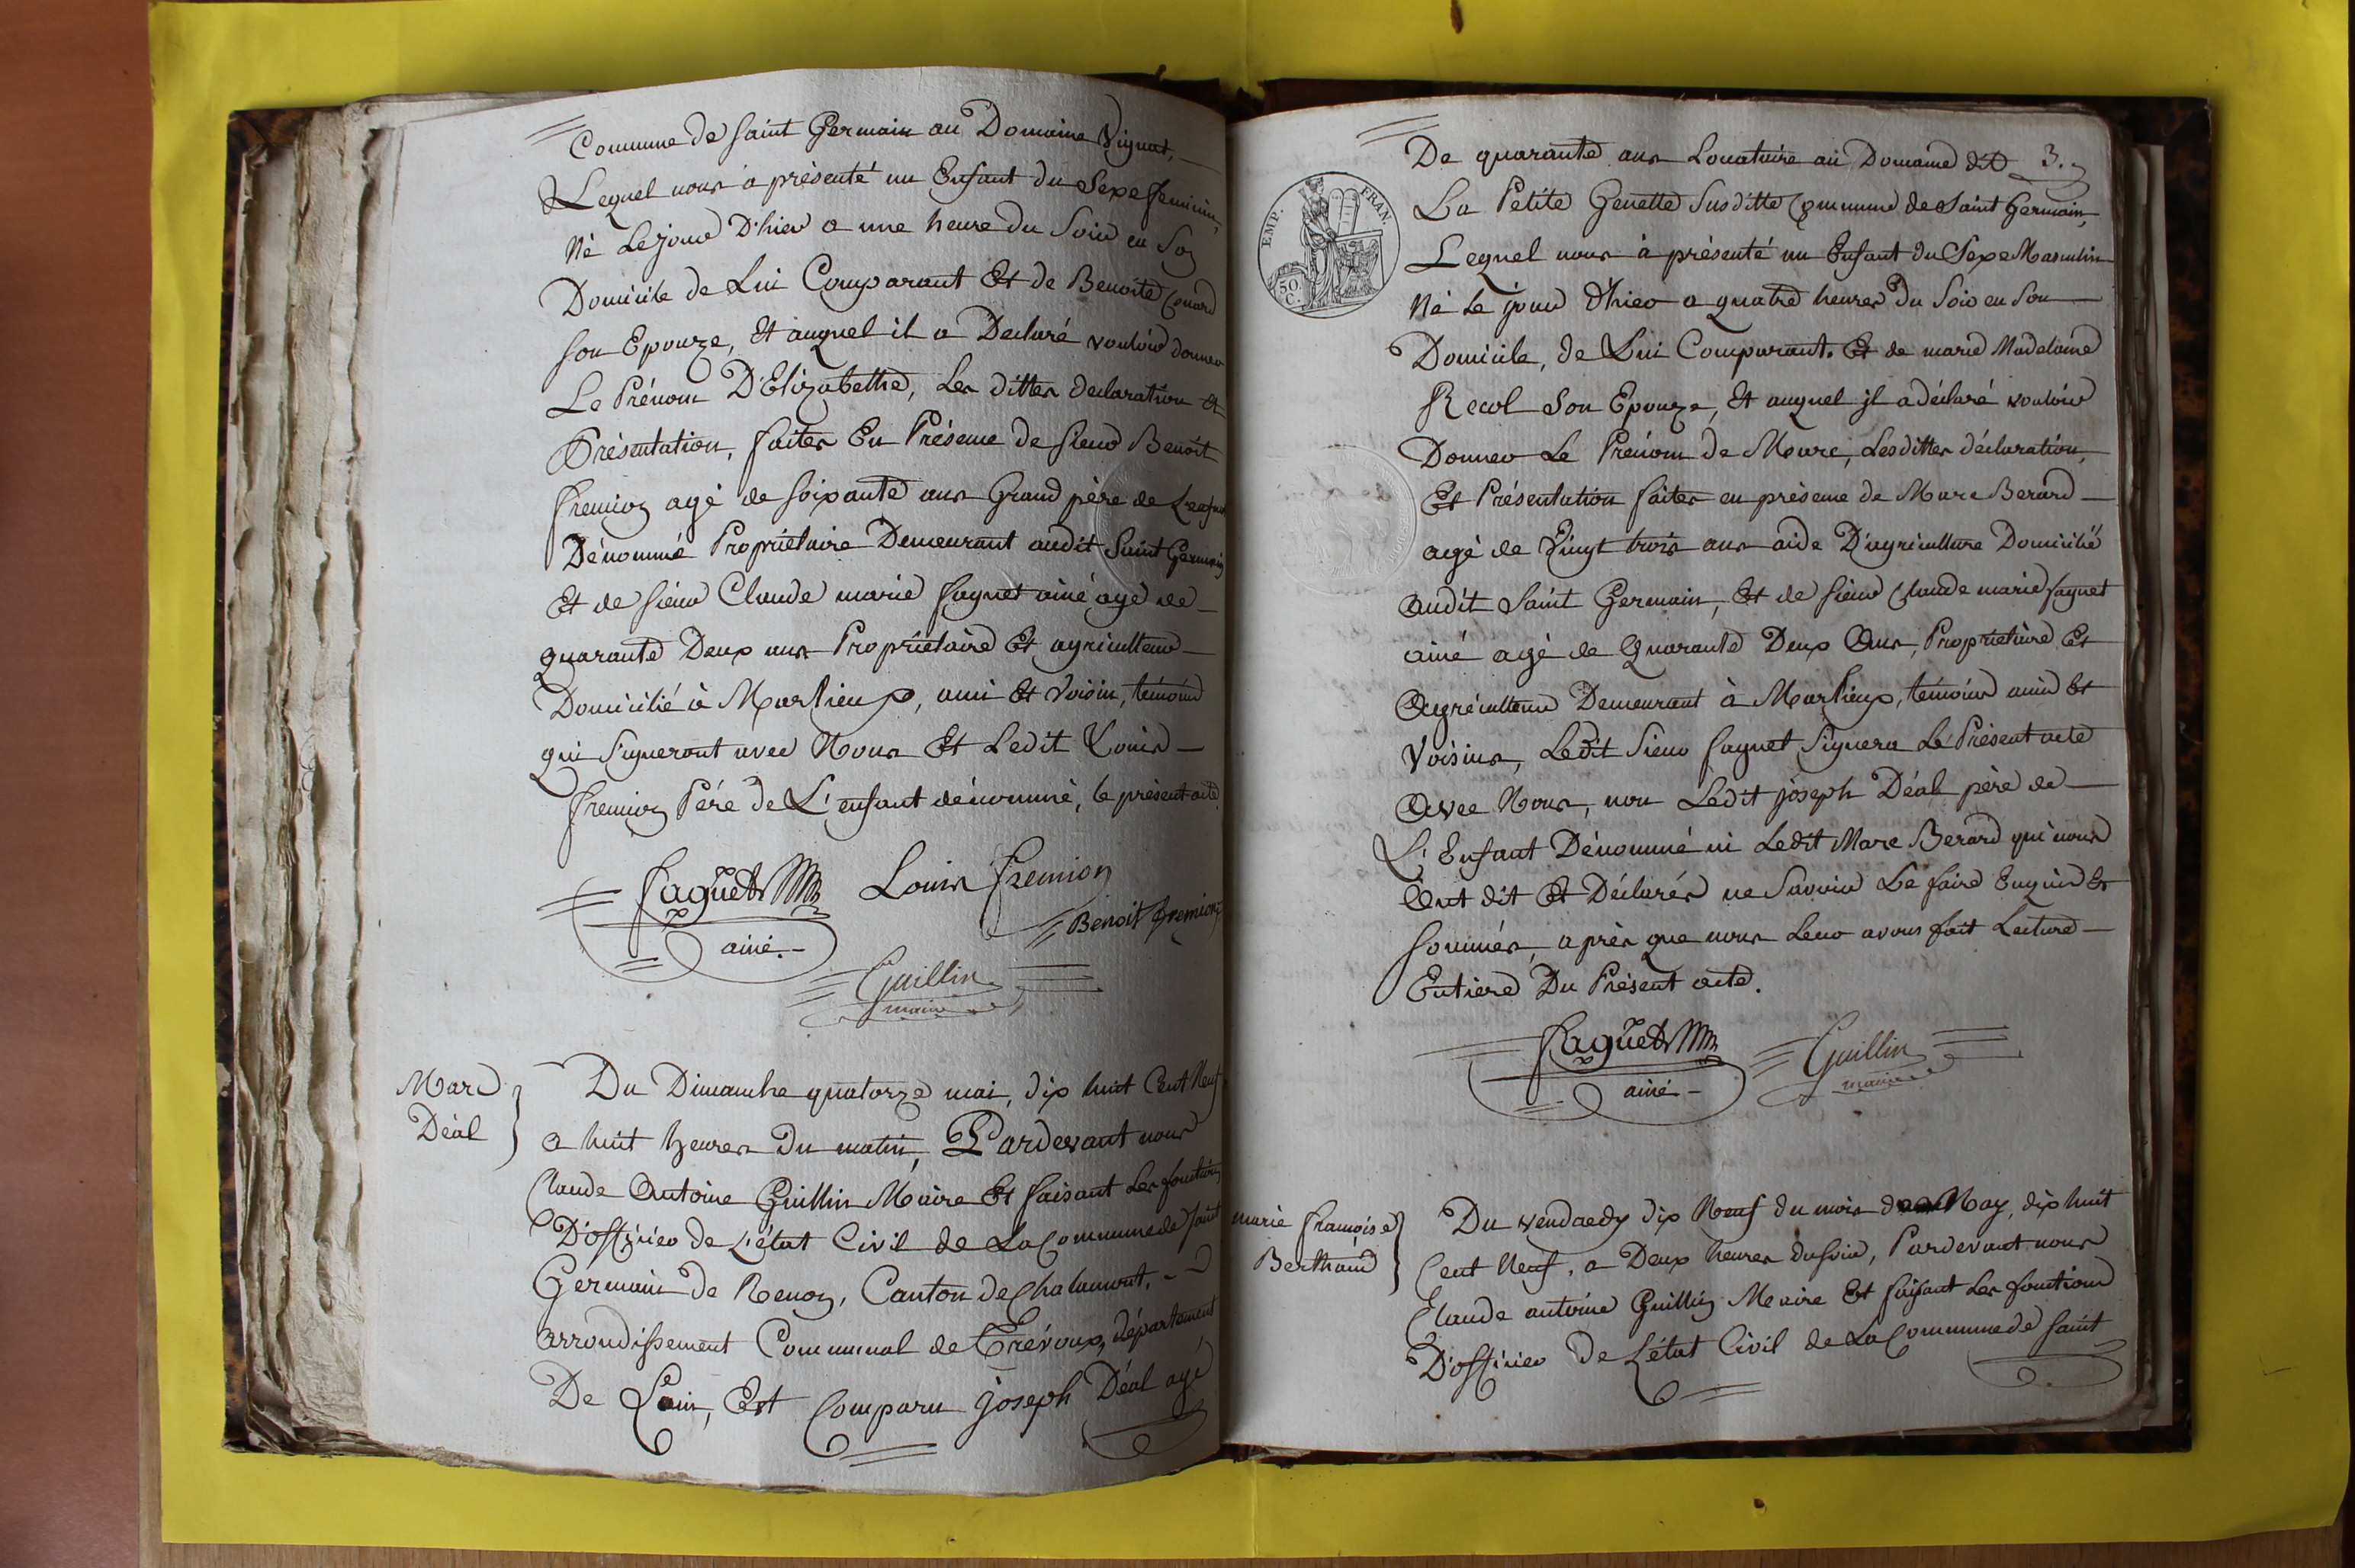 Commune de Saint Germain au Domaine Vignat,
Lequel nous a présenté un Enfant du Sexe feminin,
Né Le jour D'hier a une heure du Soir en Son
Domicile de Lui Comparant Et de Benoite
Son Epouze, Et auquel il a Declaré vouloir donner
Le Prénom D'Elizabethe, Les dittes declaration et
Présentation, faites En Présence de Sieur Benoit
fremion agé de Soixante ans Grand père de L'enfant
Dénommé Propriétaire Demeurant audit Saint Germain
Et de Sieur Claude marie faguet ainé agé de
quarante Deux ans Propriétaire Et agriculteur
Domicilié à Marlieux, ami Et Voisin, témoins
qui Signeront avec Nous Et Ledit Louis
fremion Père de L'enfant dénommé, le présent acte
faguet Louis fremion
Benoit fremion
ainé.
Guillin
maire
Marc
Déal
Du Dimanche quatorze mai, dix huit Cent Neuf
a huit heures Du matin, Pardevant nous
Claude Antoine Guillin Maire Et faisant Les fonctions
D'officier de L'état Civil de La Commune de Saint
Germain de Renon, Canton de Chalamont,
arrondissement Communal de Trévoux, département
De Lain, Est Comparu joseph Déal agé
De quarante ans Locataire au Domaine dit 3.
La Petite Genette Susditte Commune de Saint Germain,
Lequel nous à présenté un Enfant du Sexe Masculin
Né Le jour d'hier a quatre heures Du Soir en Son
Domicile, de Lui Comparant. Et de marie Madelaine
Recol Son Epouze, Et auquel jl a déclaré vouloir
Donner Le Prénom de Marc, Lesdittes déclaration,
Et Présentation faites en présence de Marc Berard
agé de Vingt trois ans aide D'agriculture Domicilié
audit Saint Germain, Et de Sieur Claude marie faguet
ainé agé de Quarante Deux Ans, Propriétaire Et
Agriculteur Demeurant à Marlieux, témoins amis Et
Voisins, Ledit Sieur faguet Signera Le Présent acte
Avec Nous, non Ledit joseph Déal père de
L'Enfant Dénommé ni Ledit Marc Berard qui nous
Ont dit Et Déclarés ne Savoir Le faire Enquis Et
Sommés, après que nous Leur avons fait Lecture
Entiere Du Présent acte.
faguet Guillin
ainé maire
EMP. FRAN.
50. C.
marie françoise
Berthaud
Du vendredy dix Neuf du mois de May, dix huit
Cent Neuf, a Deux heures du Soir, Pardevant nous
Claude antoine Guillin Maire Et faisant Les fonctions
D'officier De L'état Civil de La Commune de Saint